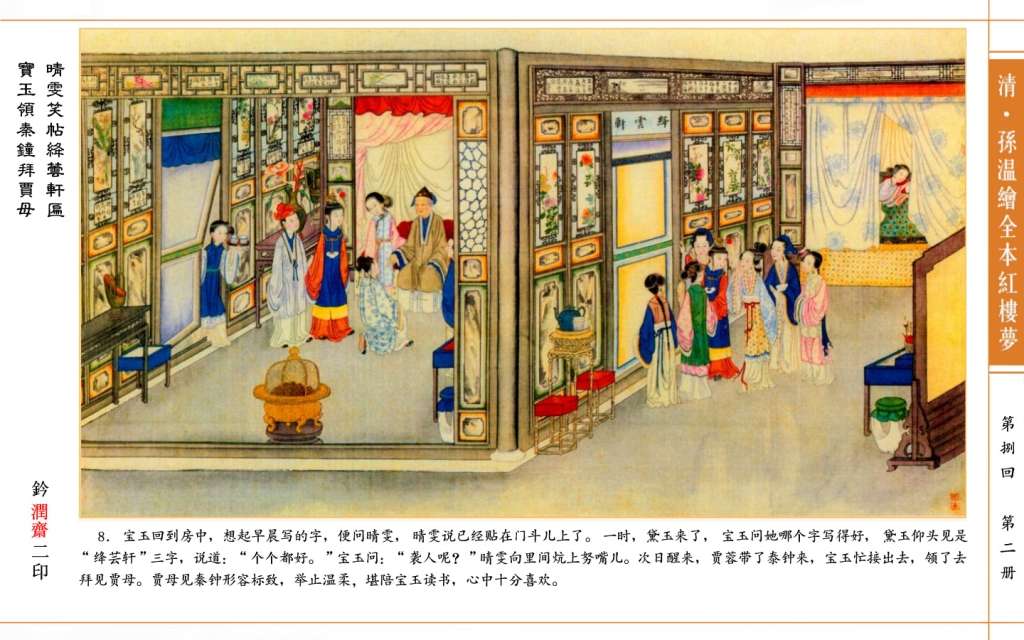 清·孫温繪全本紅樓夢
第捌回 第二册
晴雯笑帖絳蕓軒匾
寶玉領秦鐘拜賈母
絳雲軒
8. 宝玉回到房中，想起早晨写的字，便问晴雯，晴雯说已经贴在门斗儿上了。一时，黛玉来了，宝玉问她哪个字写得好，黛玉仰头见是
“绛芸轩”三字，说道：“个个都好。”宝玉问：“袭人呢？”晴雯向里间炕上努嘴儿。次日醒来，贾蓉带了秦钟来，宝玉忙接出去，领了去
拜见贾母。贾母见秦钟形容标致，举止温柔，堪陪宝玉读书，心中十分喜欢。
鈐潤齋二印